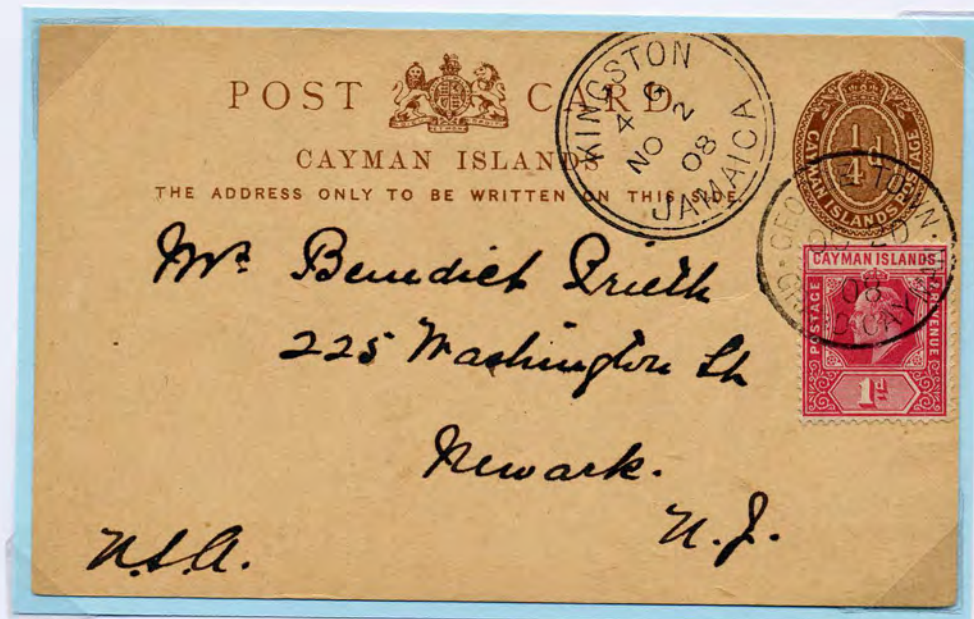 POST CARD
CAYMAN ISLANDS
THE ADDRESS ONLY TO BE WRITTEN ON THIS SIDE.
KINGSTON
4 G
NO 2
08
JAMAICA
¼d
CAYMAN ISLANDS POSTAGE
GEORGE TOWN
08
GRAND CAYMAN
CAYMAN ISLANDS
POSTAGE & REVENUE
1d
Mr. Benedict Prieth
225 Washington St
Newark.
N.J.
U.S.A.